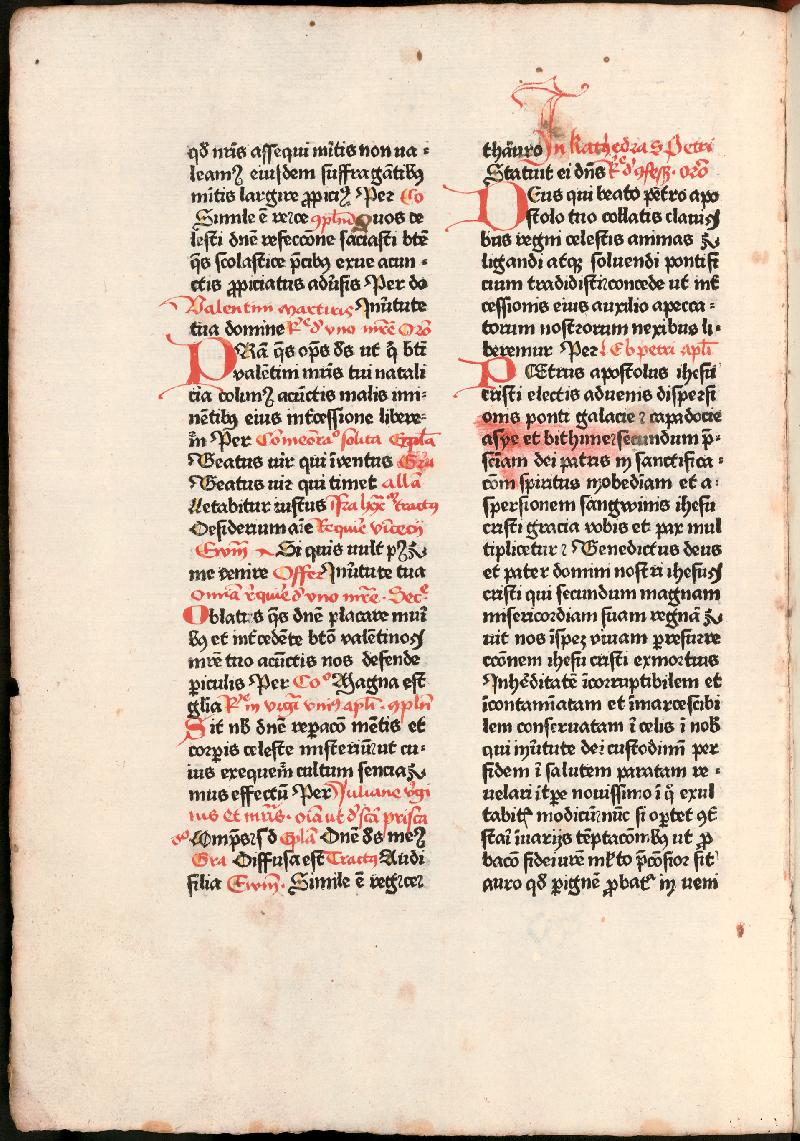 qd̄ nr̄is assequi mītis non ua⸗
leamꝰ eiusdem suffragātibꝰ
mītis largire ꝓpiciꝰ Per Co
Simile ē rerce 9plnd Quos ce
lesti dn̄e refeccōne saciasti btē
qs̄ scolastice p̄cibꝰ exue acun⸗
ctis ꝓpiciatus adūsis Per do
Valentini martiris Inūtute
tua domine R̄e d̓ vno mr̄e Orō
PRā qs̄ op̄s ds̄ ut q̄ btī
valētini mr̄is tui natali
cia colimꝰ acūctis malis imi⸗
nētibꝰ eius int̄cessione libere⸗
m̄ Per Cōmeōra° solita Ep̄la
Beatus uir qui īventus Gra
Beatus uir qui timet alla
Letabitur iustus tractꝰ
Desiderium aīe Require vīcecii
Ewm̄ Si quis uult pꝰ
me venire Offer Inūtute tua
Omīa req̄uie d̓ vno mr̄e. Sec°
Oblatis qs̄ dn̄e placare muī
bꝰ et int̄cedēte btō valētino
mr̄e tuo acūctis nos defende
periculis Per Co° Magna est
glia R̄e in vigīa vniꝰ apli. 9pln̄
Sit nb̄ dn̄e rep̄acō mētis et
corpis celeste misteriū ut cu⸗
ius exequem̄ cultum sencia
mus effectū Per Juliane v̓gi
nis et mr̄is. oīa ut d̓ scā prisca
Ep̄la Dn̄e ds̄ meꝰ
Gra Diffusa est Tractꝰ Audi
filia Ewm̄. Simile ē regꝛceꝛ
thāuro In kathedra S Petri
Statuit ei dn̄s R̄e d̓ 9fess. orō
DEus qui beato petro apo
stolo tuo collatis clauis
bus regni celestis animas
ligandi atqꝫ soluendi pontifi
cium tradidisti concede ut int̄
cessionis eius auxilio apecca⸗
torum nostrorum nexibus li⸗
beremur Per E b petri apl̄i
PEtrus apostolus ihesu
cristi electis aduenis dispersi
onis ponti galacie ⁊ capadocie
asye et bithinie secundum p̄⸗
sciam dei patris in sanctifica⸗
cōm spiritus inobediam et a⸗
spersionem sangwinis ihesu
cristi gracia vobis et pax mul
tiplicetur Benedictus deus
et pater domini nostri ihesu
cristi qui secundum magnam
misericordiam suam regnā
uit nos īspeꝫ viuam p̄resurre
ccōnem ihesu cristi exmortuis
Inhēditatē īcorruptibilem et
īcontamīatam et īmarcescibi
lem conseruatam ī celis ī nob̄
qui inūtute dei custodimī per
fidem ī salutem paratam re⸗
uelari īt̄pe nouissimo ī q̄ exul
tabit̄ modicū nūc si oꝓtet 9t̄
staī īuarijs tēptacōnibꝰ ut ꝓ
bacō fidei ure ml̄to p̄cōsior sit
auro qd̄ p ignē ꝓbat̄ in ueni